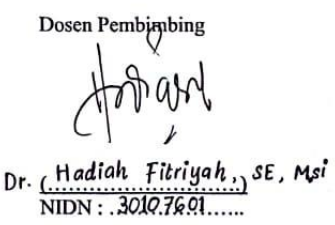 Dosen Pembimbing
Dr. (Hadiah Fitriyah,) SE, Msi
NIDN : .3010.7601......